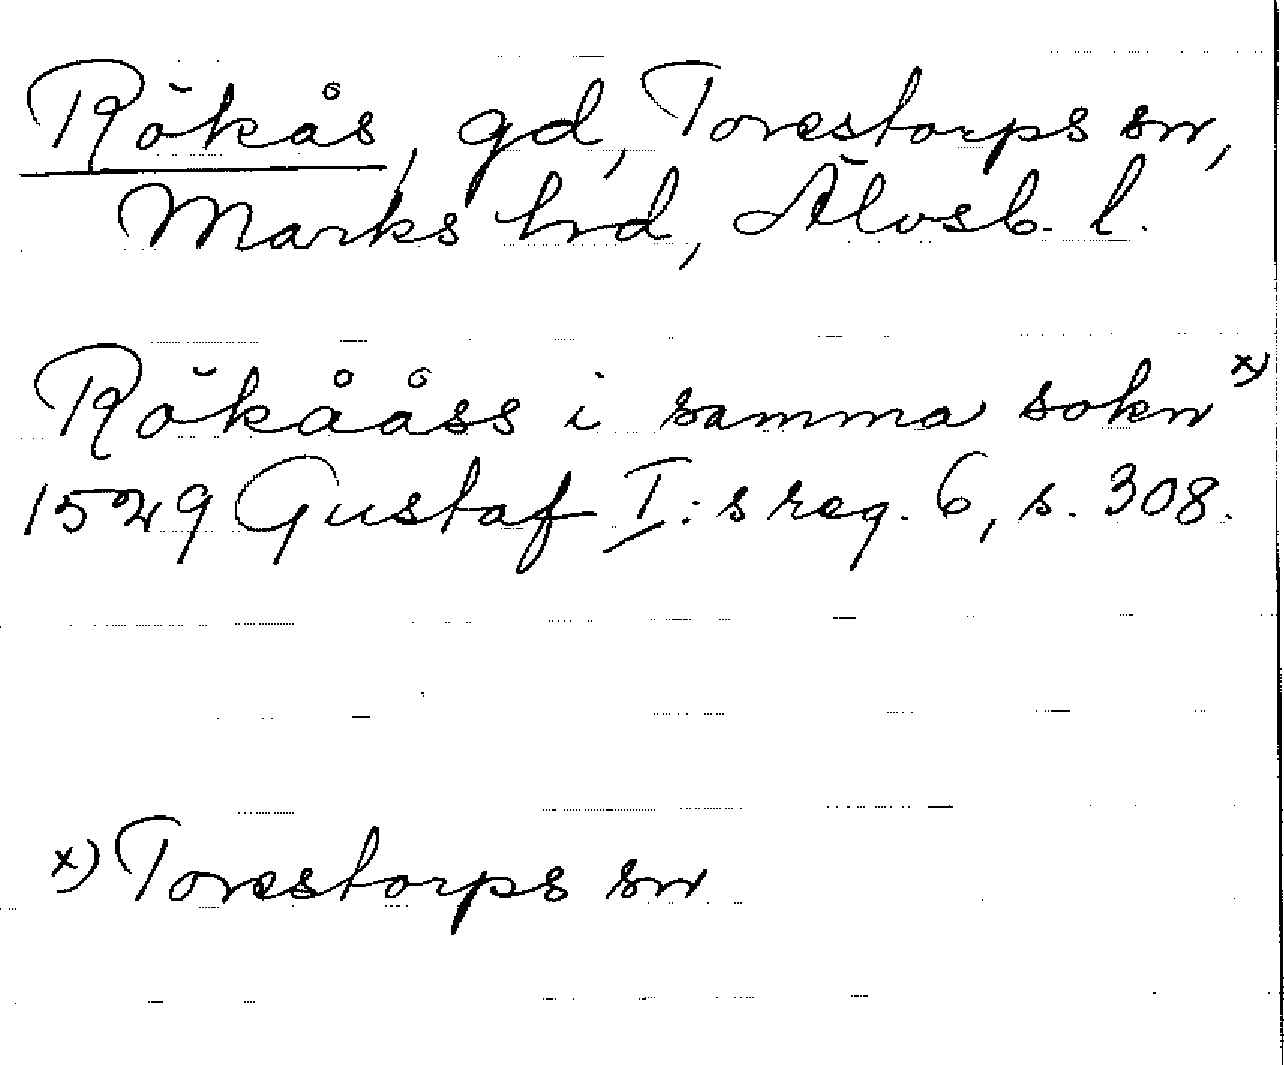 Rökås, gd, Torestorps sn,
Marks hd, Älvsb. l.
Rökååss i samma sokn x)
1529 Gustaf I:s reg. 6, s. 308.
x) Torestorps sn